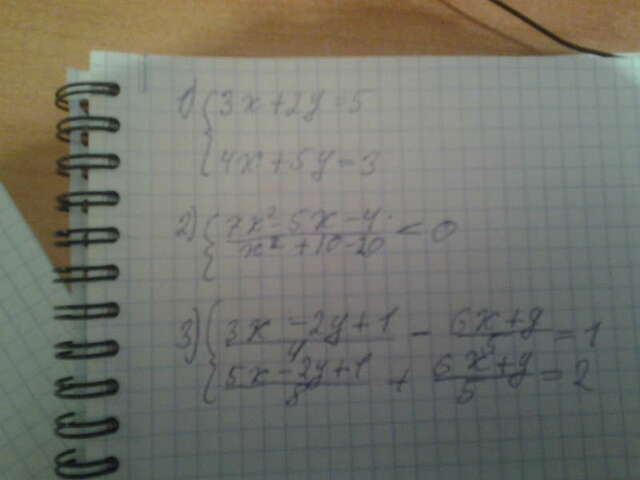 1) { 3x + 2y = 5
4x + 5y = 3
2) { 7x² - 5x - 4 / x² + 10 - 20 < 0
3) { 3x - 2y + 1 / 4 - 6x + y / 5 = 1
5x - 2y + 1 / 8 + 6x + y / 5 = 2